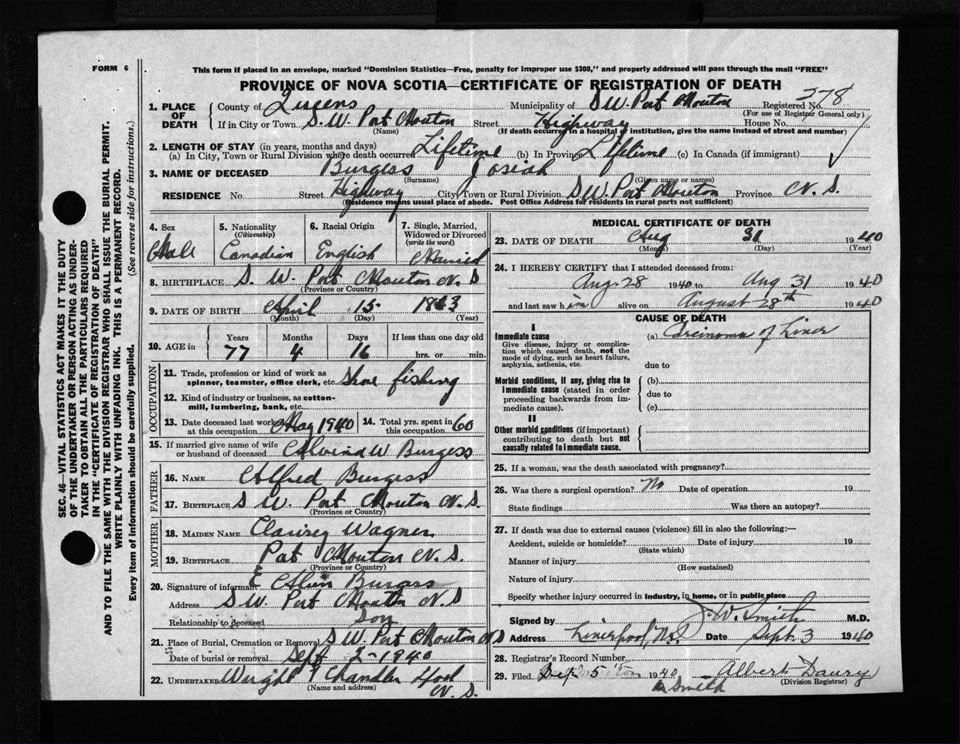 FORM 6
This form if placed in an envelope, marked "Dominion Statistics—Free, penalty for improper use $300," and properly addressed will pass through the mail "FREE"
PROVINCE OF NOVA SCOTIA—CERTIFICATE OF REGISTRATION OF DEATH
1. PLACE OF DEATH County of Queens Municipality of S W. Port Mouton Registered No. 378
(For use of Registrar General only)
If in City or Town S. W. Port Mouton Street Highway House No.
(Name) (If death occurred in a hospital or institution, give the name instead of street and number)
2. LENGTH OF STAY (in years, months and days)
(a) In City, Town or Rural Division where death occurred Lifetime (b) In Province Lifetime (c) In Canada (if immigrant)
3. NAME OF DECEASED Burgess Josiah
(Surname) (Given name or names)
RESIDENCE No. Street Highway City Town or Rural Division S W. Port Mouton Province N. S.
(Residence means usual place of abode. Post Office Address for residents in rural parts not sufficient)
4. Sex Male
5. Nationality (Citizenship) Canadian
6. Racial Origin English
7. Single, Married, Widowed or Divorced (write the word) Married
8. BIRTHPLACE S. W. Port Mouton N. S
(Province or Country)
9. DATE OF BIRTH April 15 1863
(Month) (Day) (Year)
10. AGE in Years 77 Months 4 Days 16 If less than one day old hrs. or min.
OCCUPATION
11. Trade, profession or kind of work as spinner, teamster, office clerk, etc. Shore fishing
12. Kind of industry or business, as cotton-mill, lumbering, bank, etc.
13. Date deceased last worked at this occupation May 1940
14. Total yrs. spent in this occupation 60
15. If married give name of wife or husband of deceased W Burgess
FATHER
16. NAME Alfred Burgess
17. BIRTHPLACE S W. Port Mouton N. S.
(Province or Country)
MOTHER
18. MAIDEN NAME Wagner
19. BIRTHPLACE Port Mouton N. S.
(Province or Country)
20. Signature of informant E Burgess
Address S W. Port Mouton N. S
Relationship to deceased Son
21. Place of Burial, Cremation or Removal S W. Port Mouton N S
Date of burial or removal Sept 2-1940
22. UNDERTAKER Wright Chandler
N. S.
(Name and address)
MEDICAL CERTIFICATE OF DEATH
23. DATE OF DEATH Aug 31 1940
(Month) (Day) (Year)
24. I HEREBY CERTIFY that I attended deceased from:
Aug. 28 1940 to Aug 31 1940
and last saw him alive on August 28th 1940
CAUSE OF DEATH
I
Immediate cause
Give disease, injury or complication which caused death, not the mode of dying, such as heart failure, asphyxia, asthenia, etc.
(a) Carcinoma of Liver
due to
Morbid conditions, if any, giving rise to immediate cause (stated in order proceeding backwards from immediate cause).
(b)
due to
(c)
II
Other morbid conditions (if important) contributing to death but not causally related to immediate cause.
25. If a woman, was the death associated with pregnancy?
26. Was there a surgical operation? No Date of operation 19
State findings Was there an autopsy?
27. If death was due to external causes (violence) fill in also the following:—
Accident, suicide or homicide? Date of injury 19
(State which)
Manner of injury
(How sustained)
Nature of injury
Specify whether injury occurred in industry, in home, or in public place
Signed by J. W. Smith M.D.
Address Liverpool, N.S. Date Sept. 3 1940
28. Registrar's Record Number
29. Filed Sept 5 1940 Albert Daury
Smith (Division Registrar)
SEC. 46—VITAL STATISTICS ACT MAKES IT THE DUTY
OF THE UNDERTAKER OR PERSON ACTING AS UNDER-
TAKER TO OBTAIN ALL THE PARTICULARS REQUIRED
IN THE "CERTIFICATE OF REGISTRATION OF DEATH"
AND TO FILE THE SAME WITH THE DIVISION REGISTRAR WHO SHALL ISSUE THE BURIAL PERMIT.
WRITE PLAINLY WITH UNFADING INK. THIS IS A PERMANENT RECORD.
Every item of information should be carefully supplied. (See reverse side for instructions.)